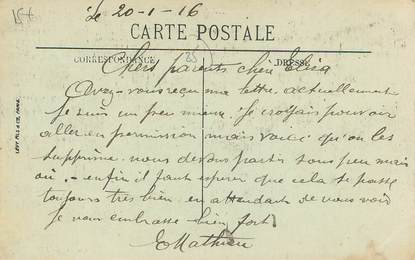 15+
Le 20-1-16
CARTE POSTALE
CORRESPONDANCE
DRESSE
Chers parents chère Eliza
Avez-vous reçu ma lettre, actuellement
je suis un peu mieux. Je croyais pouvoir
aller en permission mais voici qu'on les
supprime. nous devons partir sous peu mais
où. - enfin il faut espérer que cela se passe
toujours très bien. en attendant de vous voir
je vous embrasse bien fort
EMathieu
LEVY FILS & CIE, PARIS.